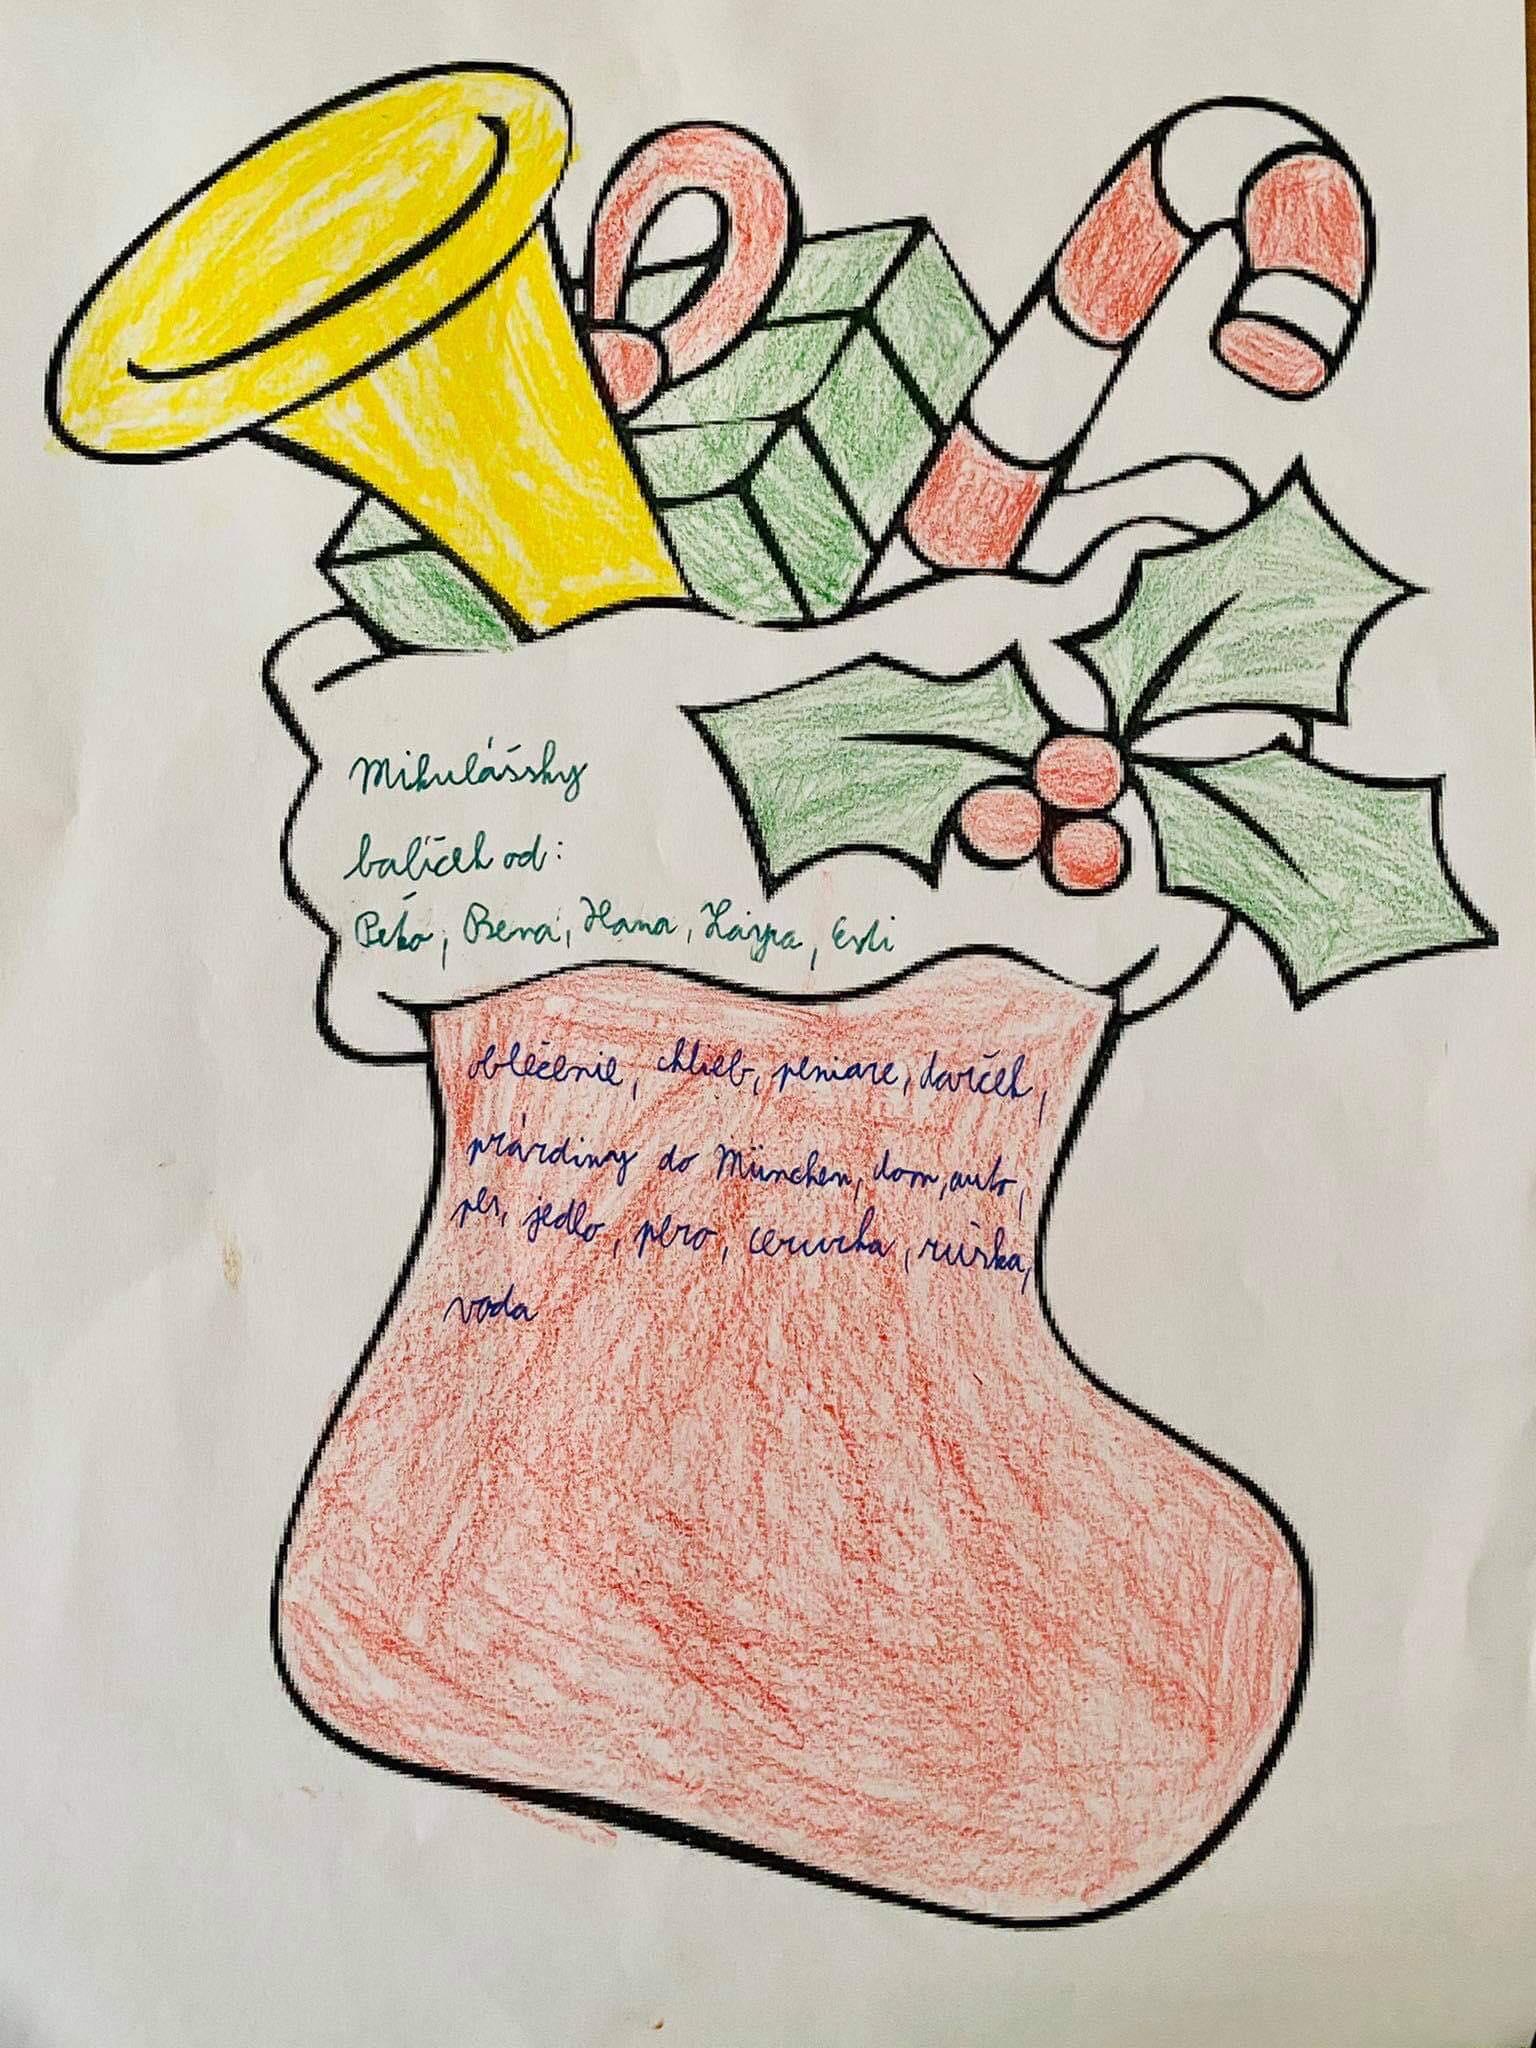 Mikulášsky
balíček od:
Peťo, Bena, Hana, Karpa, Esti
oblečenie, chlieb, peniare, darček,
prárdiny do München, dom, auto,
pes, jedlo, pero, cerurka, rúška,
voda